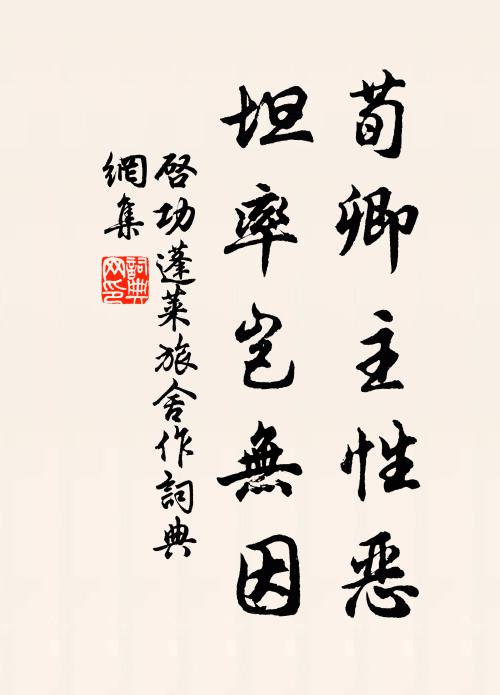 荀卿主性恶
坦率岂無因
啓功蓬莱旅舍作詞典
網集
詞典網印